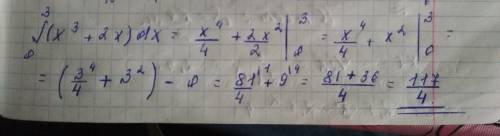 ∫₀³ (x³ + 2x) dx = x⁴/4 + 2x²/2 |₀³ = x⁴/4 + x² |₀³ =
= (3⁴/4 + 3²) - 0 = 81/4 + 9 = (81 + 36)/4 = 117/4